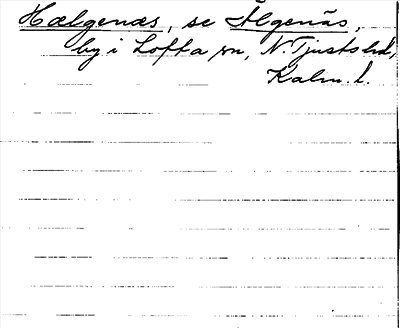 Hælgenæs, se Älgenäs,
by i Lofta sn, N. Tjusts hd,
Kalm. l.